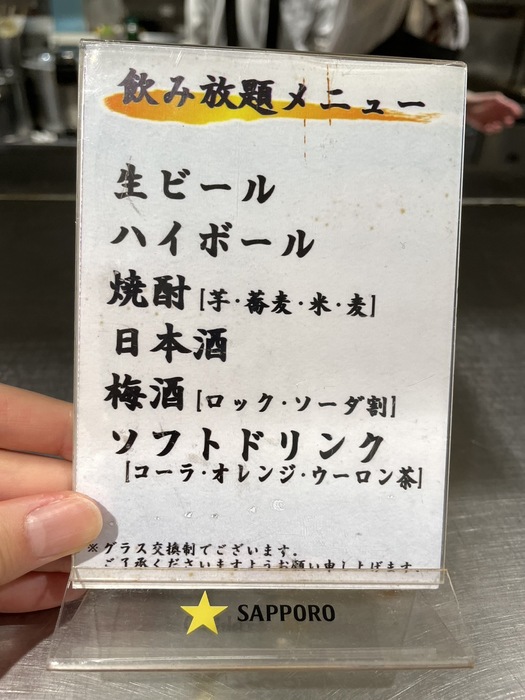 飲み放題メニュー
生ビール
ハイボール
焼酎[芋・蕎麦・米・麦]
日本酒
梅酒[ロック・ソーダ割]
ソフトドリンク
[コーラ・オレンジ・ウーロン茶]
※グラス交換制でございます.
ご了承くださいますようお願い申し上げます.
SAPPORO